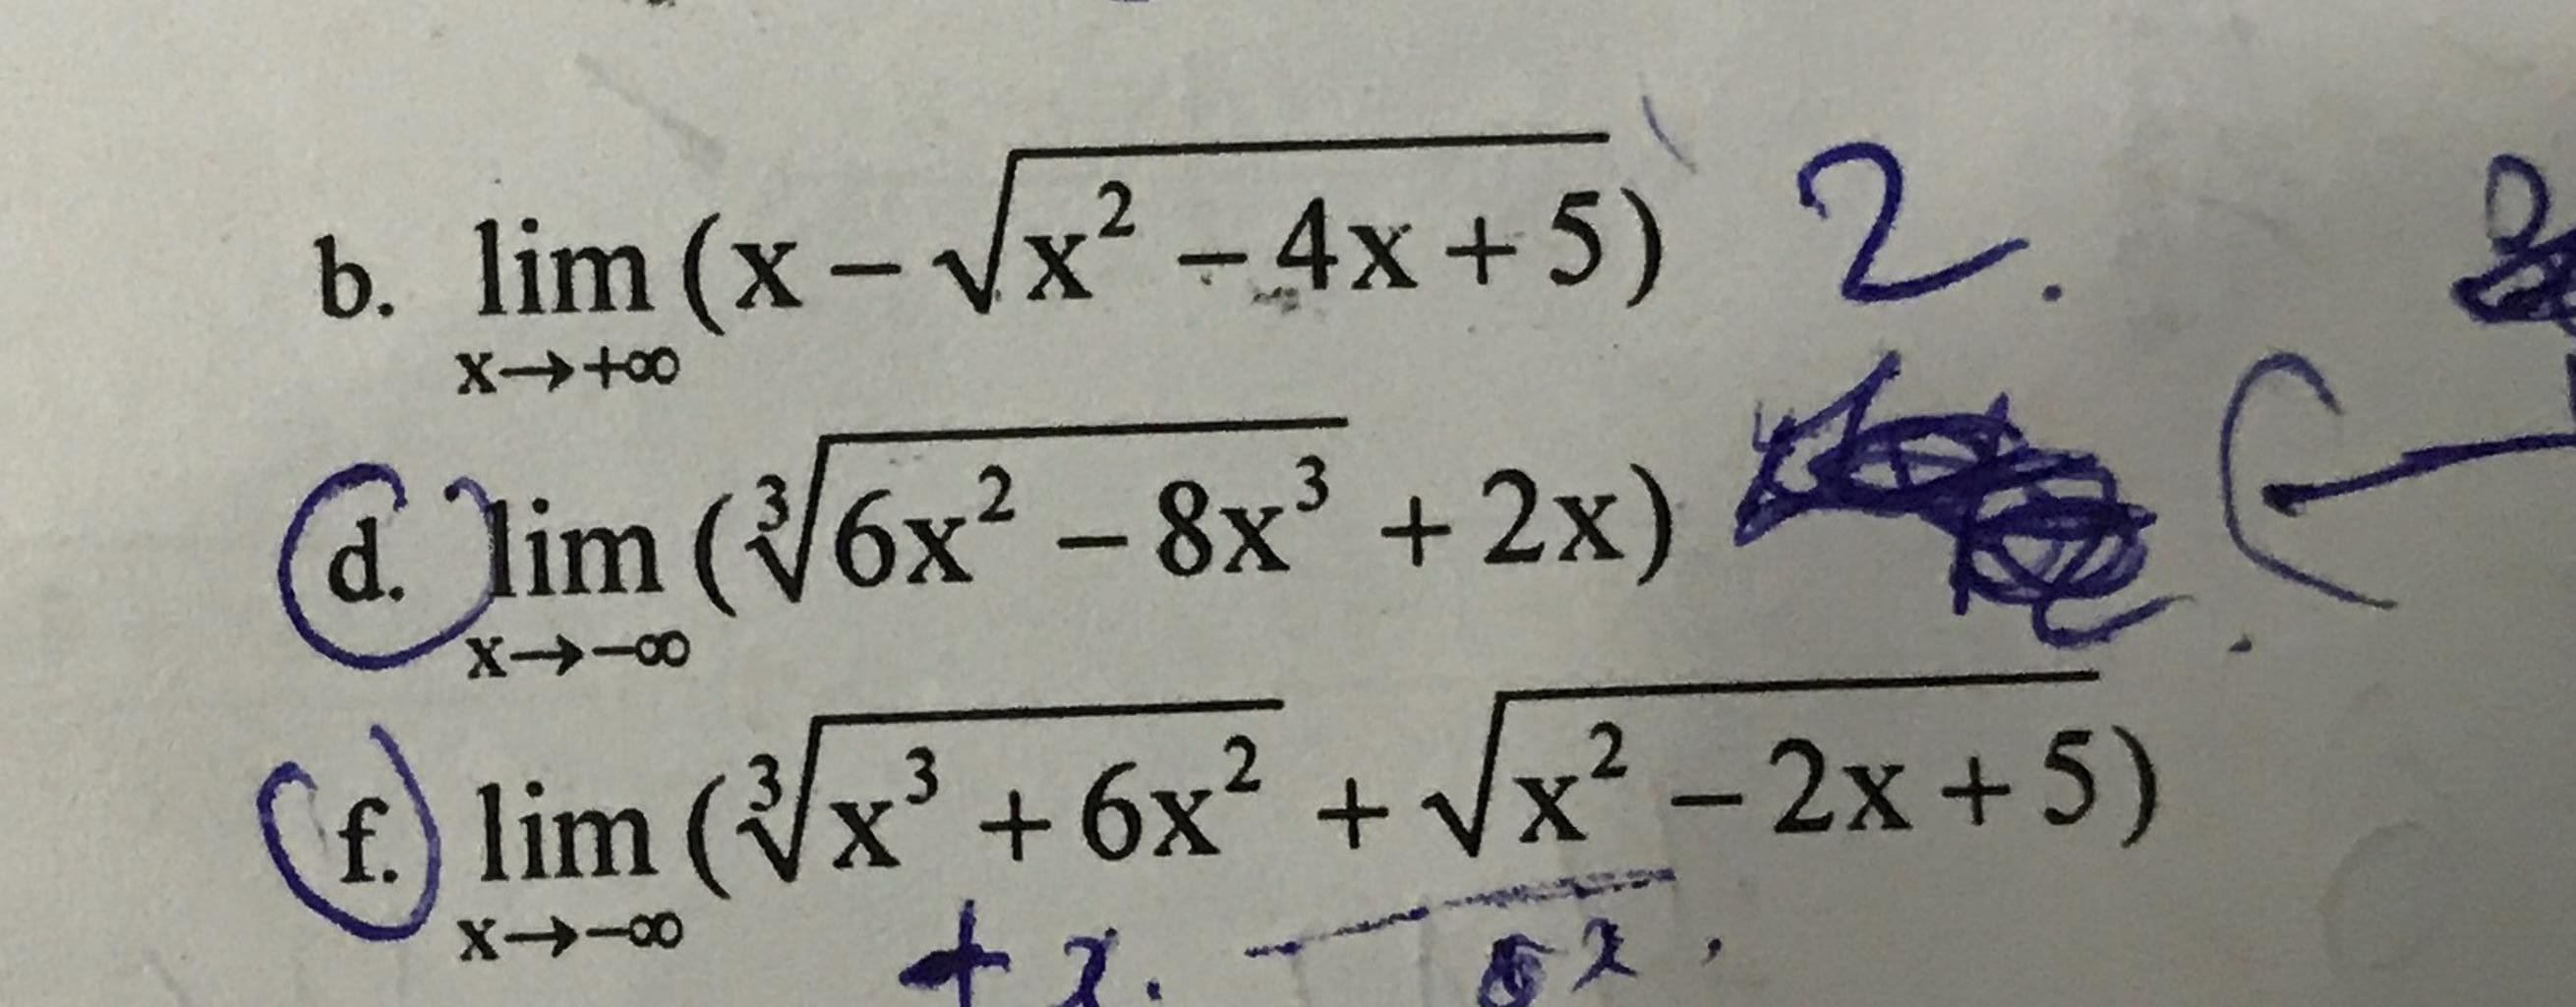 b. lim (x − √(x² − 4x + 5)) 2.
x→+∞
d. lim (∛(6x² − 8x³) + 2x)
x→−∞
f. lim (∛(x³ + 6x²) + √(x² − 2x + 5))
x→−∞
+ x.